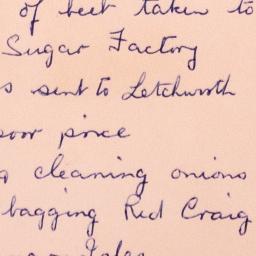 of beet taken to
Sugar Factory
s sent to Letchworth
poor price
cleaning onions
bagging Red Craig